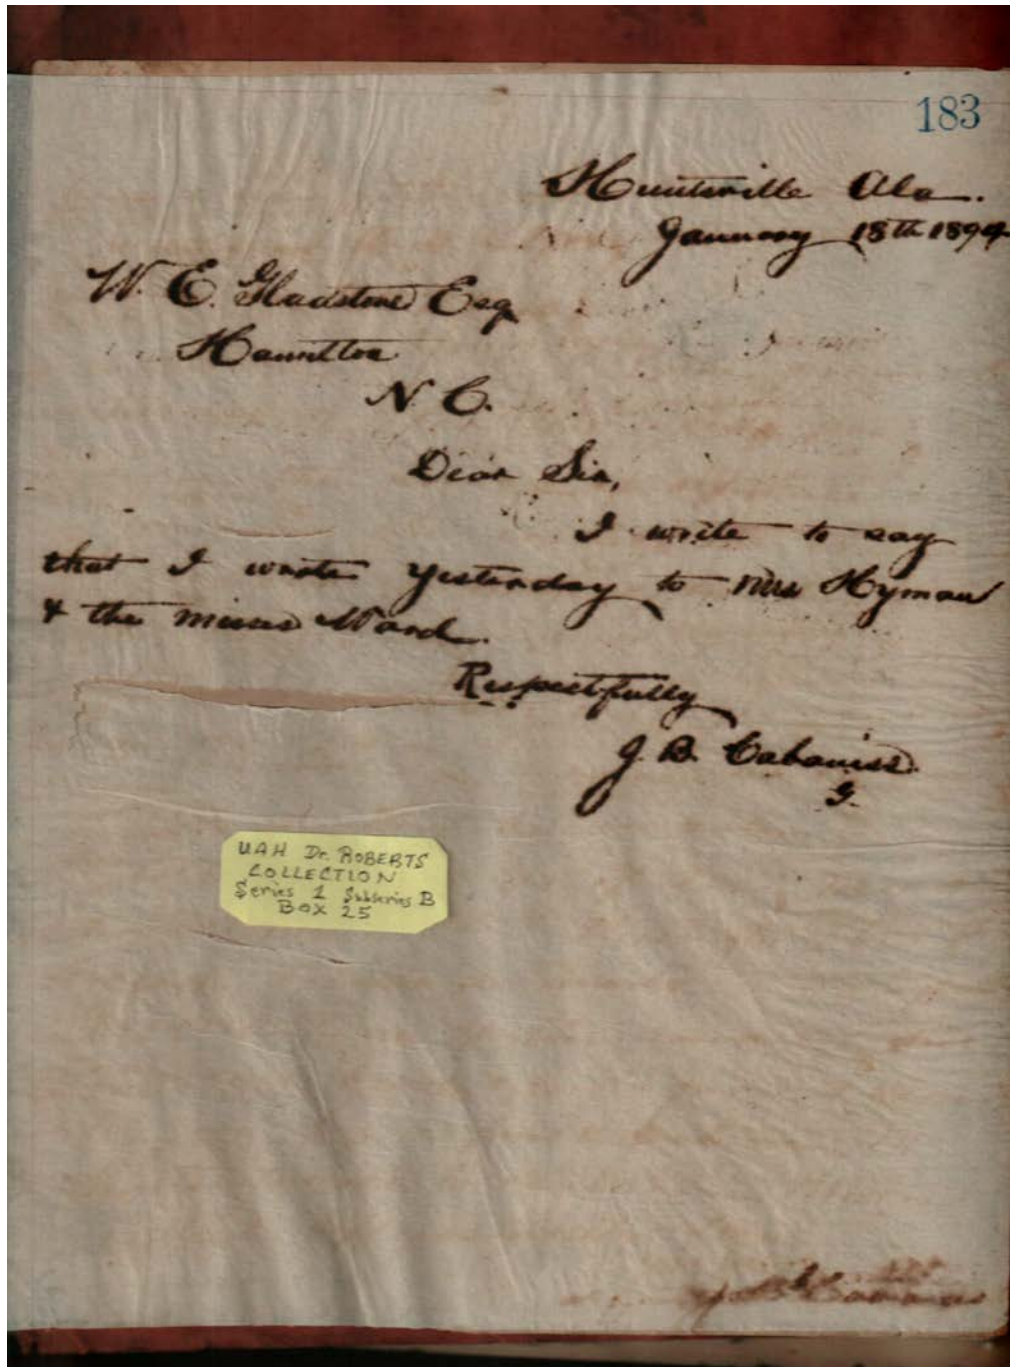 183
Huntsville Ala.
January 18th 1894
W. E. Gladstone Esq
Hamilton
N. C.
Dear Sir,
I write to say
that I wrote yesterday to Mrs Hyman
& the misses Ward.
Respectfully
J. B. Cabaniss.
G.
UAH Dr. ROBERTS
COLLECTION
Series 1 Subseries B
BOX 25